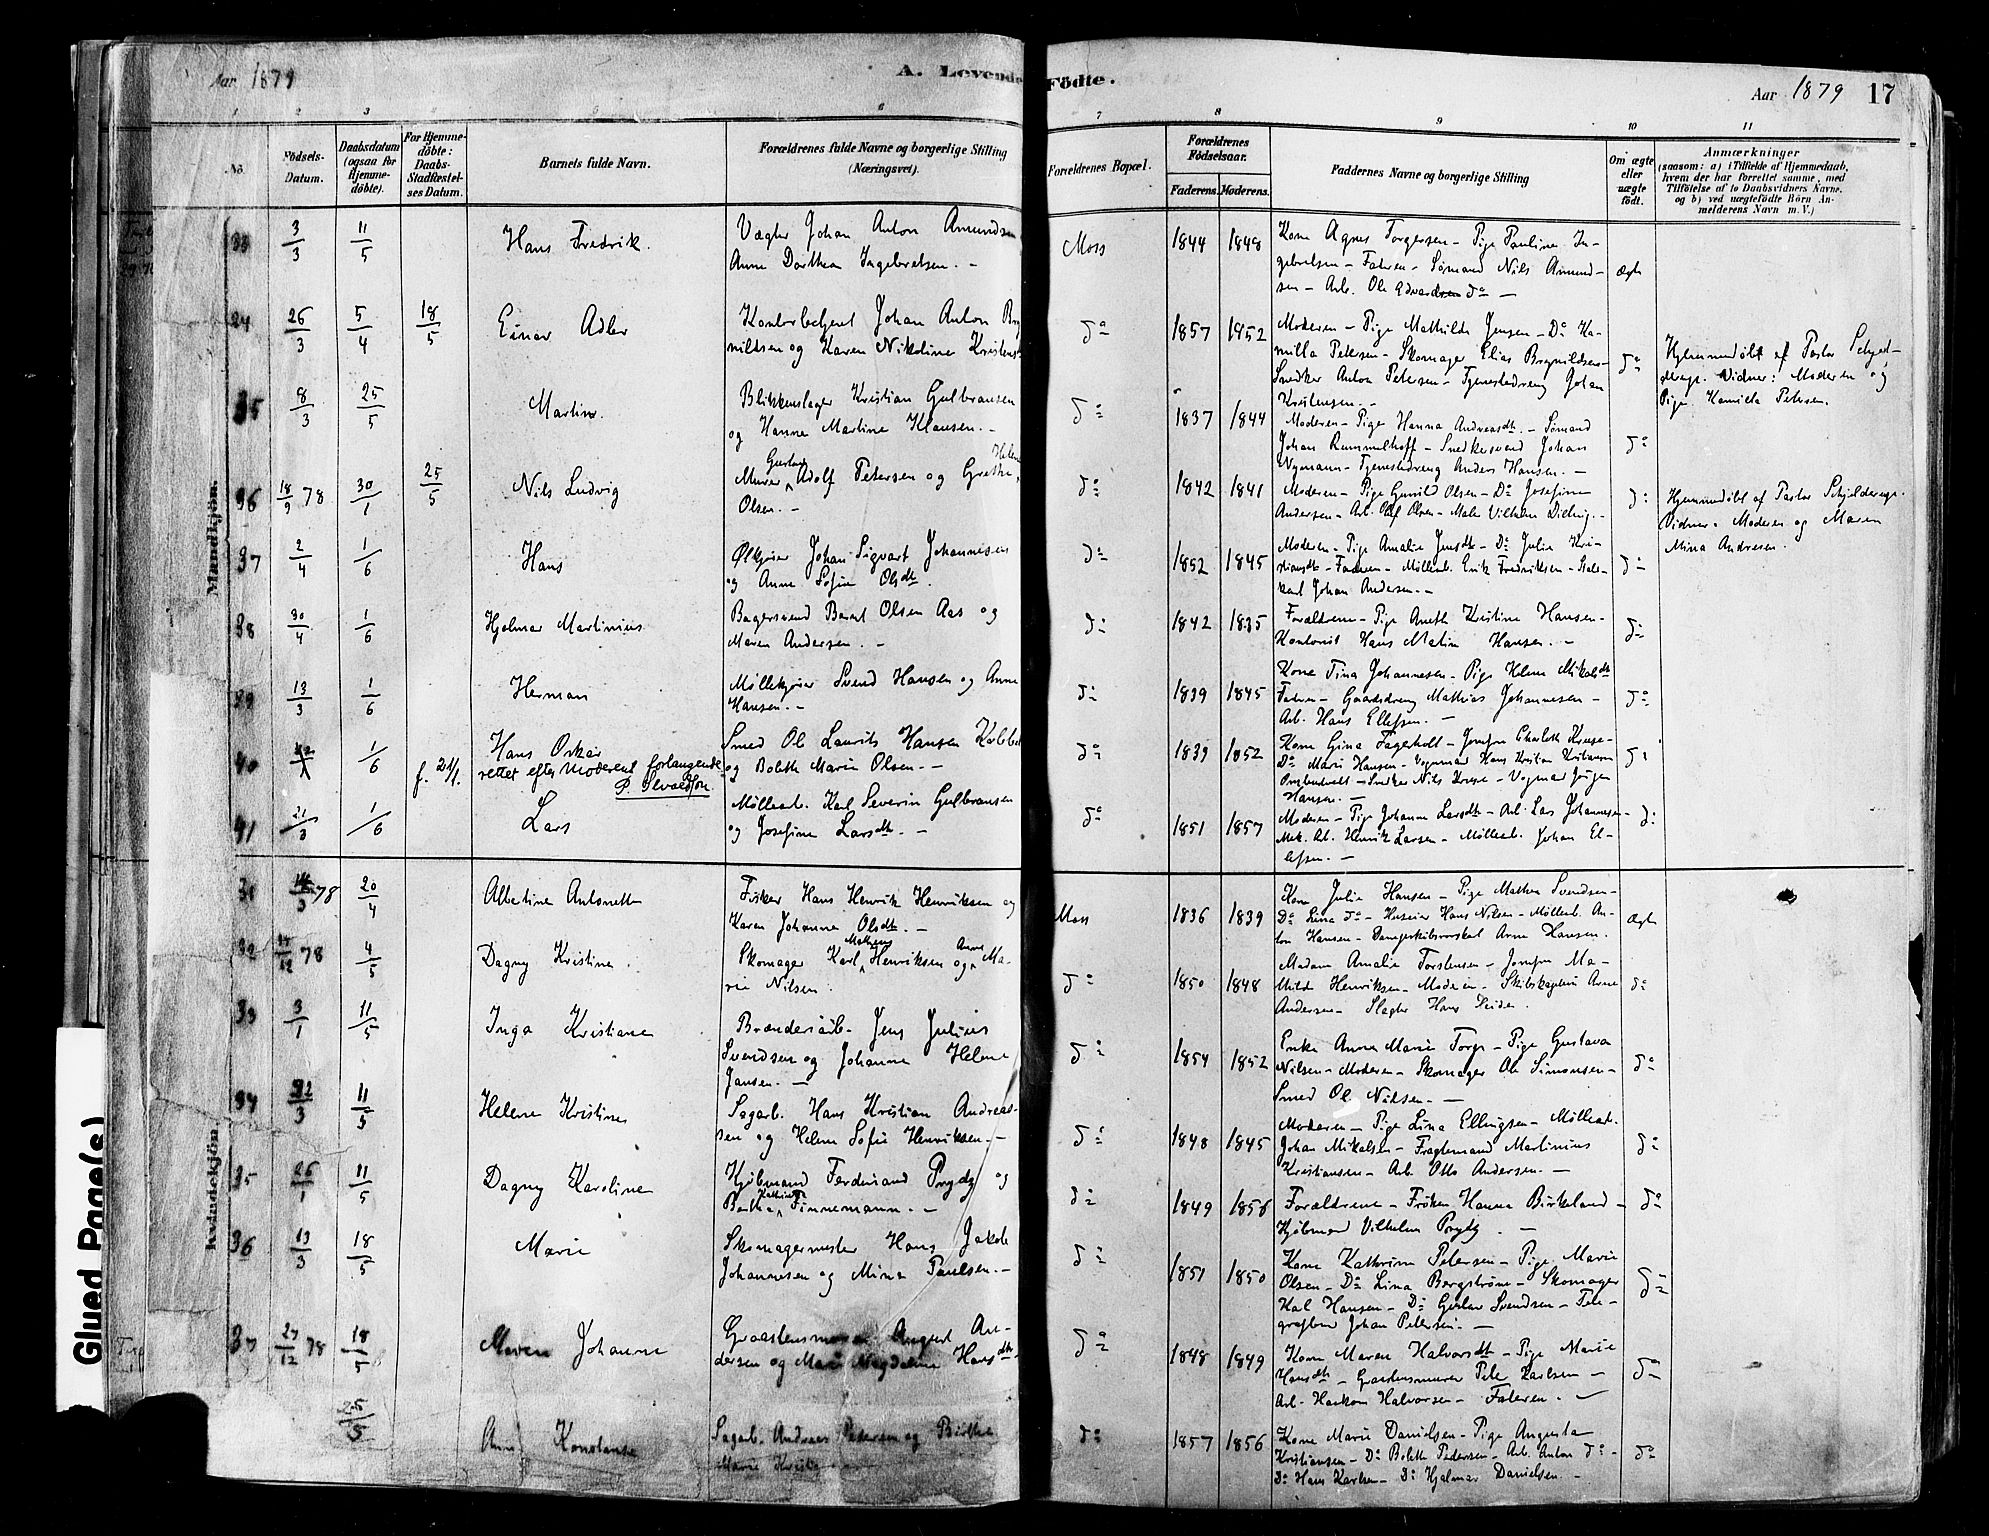 Aar 1879
A. Levende Födte.
Aar 1879 17
1 2 3 4 5 6 7 8 9 10 11
No.
Födsels-Datum.
Daabsdatum (ogsaa for Hjemmedöbte).
For Hjemmedöbte: Daabs-Stadfæstelses Datum.
Barnets fulde Navn.
Forældrenes fulde Navne og borgerlige Stilling (Næringsvei).
Forældrenes Bopæl.
Forældrenes Födselsaar.
Faderens. Moderens.
Faddernes Navne og borgerlige Stilling
Om ægte eller uægte födt.
Anmærkninger
(saasom: a) i Tilfælde af Hjemmedaab,
hvem der har forrettet samme, med
Tilföielse af to Daabsvidners Navne.
og b) ved uægtefödte Börn An-
melderens Navn m. V.)
Mandkjön.
33 3/3 11/5 Hans Fredrik. Vægter Johan Anton Amundsen
Anne Dorthea Ingebretsen. -
Moss 1844 1848 Kone Agnes Torgersen - Pige Pauline In-
gebretsen - Faderen - Sømand Nils Amund-
sen - Arb. Ole Edvardsen do - ægte
34 26/3 5/4 18/5 Einar Adler Kontorbetjent Johan Anton Bry
nildsen og Karen Nikoline Kristens
do 1857 1852 Moderen - Pige Mathilde Jensen - Do Ka-
milla Petersen - Skomager Elias Brynildsen -
Snedker Anton Petersen - Tjenestedreng Johan
Kristensen. - do
Hjemmedøbt af Pastor Schjel-
derup. Vidner: Moderen og
Pige Kamilla Petersen.
35 8/3 25/5 Martin. Blikkenslager Kristian Gulbransen
og Hanne Martine Klausen. -
do 1837 1844 Moderen - Pige Hanna Andreasdt. - Sømand
Johan Rummelhoff - Snedkersvend Johan
Nymann - Tjenestedreng Anders Hansen. - do
36 18/9 78 30/1 25/5 Nils Ludvig Murer Gustav Adolf Petersen og Grethe Helene
Olsen. -
do 1842 1841 Moderen - Pige Gunild Olsen - Do Josefine
Andersen - Arb. Oluf Olsen - Maler Vilhelm do
Hjemmedøbt af Pastor Schjelderup.
Vidner - Moderen og Maren
Mina Andresen.
37 2/4 1/6 Hans Ølkjører Johan Sigvart Johannesen
og Anne Sofie Olsdt.
do 1852 1845 Moderen - Pige Amalie Jensdt - Do Julie Kri-
stiansdt - Faderen - Møllearb. Erik Fredriksen - Stald-
karl Johan Andersen. - do
38 30/4 1/6 Hjalmar Martinius Bagersvend Bernt Olsen Aas og
Maren Andersen. -
do 1842 1835 Forældrene - Pige Aneth Kristine Hansen -
Kontorist Hans Martin Hansen. - do
39 13/3 1/6 Herman Møllekjører Svend Hansen og Anne
Hansen. -
do 1839 1845 Kone Tina Johannesen - Pige Helene Mikalsdt
Faderen - Gaardsdreng Mathias Johannesen -
Arb. Hans Ellefsen. - do
40 1/6 f. 21/1. Hans Oskar
rettet efter Moderens forlangende
Smed Ole Laurits Hansen
og Bolette Marie Olsen. -
do 1839 1852 Kone Gina Fagerholt - Jomfru Charlotte Kruse -
Do Marie Hansen - Vognmand Hans Kristian Kristiansen
- Snedker Nils Kruse - Vognmand Jørgen
Hansen. - do
41 21/3 1/6 Lars Møllearb. Karl Severin Gulbransen
og Josefine Larsdt. -
do 1851 1857 Moderen - Pige Johanne Larsdt - Arb. Lars Johannesen -
Mek. Arb. Henrik Larsen - Møllearb. Johan El-
lefsen. - do
Kvindekjön
31 78 20/4 Albertine Antonette Fisker Hans Henrik Henriksen og
Karen Johanne Olsdt. -
Moss 1836 1839 Kone Julie Hansen - Pige Mathea Svendsen -
Do Lina do - Huseier Hans Nilsen - Møllearb. An-
ton Hansen - Arne Hansen. ægte
32 78 4/5 Dagny Kristine. Skomager Karl Mathias Henriksen og Anne Ma-
rie Nilsen.
do 1850 1848 Madam Amalie Torstensen - Jomfru Ma-
thilde Henriksen - Moderen - Skibskaptein Arne
Andersen - Slagter Hans do
33 3/1 11/5 Inga Kristiane Brænderiarb. Jens Julius
Svendsen og Johanne Helene
Jansen. -
do 1854 1852 Enke Anne Marie Torp - Pige Gustava
Nilsen - Moderen - Skomager Ole Simonsen -
Smed Ole Nilsen. - do
34 22/3 11/5 Helene Kristine Sagarb. Hans Kristian Andreas-
sen og Helene Sofie Henriksen. -
do 1848 1845 Moderen - Pige Lina Ellingsen - Møllearb.
Johan Mikalsen - Fragtemand Martinius
Kristiansen - Arb. Otto Andersen. - do
35 26/1 11/5 Dagny Karoline Kjøbmand Ferdinand Prydz og
Bertha Kathinca Finnemann. -
do 1849 1856 Forældrene - Frøken Hanna Birkeland -
Kjøbmand Vilhelm Prydz. - do
36 13/3 18/5 Marie Skomagermester Hans Jakob
Johannesen og Mina Paulsen. -
do 1851 1850 Kone Kathrine Petersen - Pige Marie
Olsen - Do Lina Bergstrøm - Skomager
Karl Hansen - Do Gustav Svendsen - Tele-
grafbud Johan Petersen. - do
37 27/12 78 18/5 Maren Johanne Graastensmurer August An-
dersen og Maren Magdalene Hansdt -
do 1848 1849 Kone Maren Halvorsdt - Pige Marie
Hansdt - Graastensmurer Peter Karlsen -
Arb. Haakon Halvorsen - Faderen. - do
25/5 Anne Konstanse Sagarb. Andreas Pedersen og Birthe
Marie
do 1857 1856 Kone Marie Danielsen - Pige Augusta
Kristiansen - Do Bolette Pedersen - Arb. Anton do -
Do Hans Karlsen - Do Hjalmar Danielsen - do
Glued Page(s)